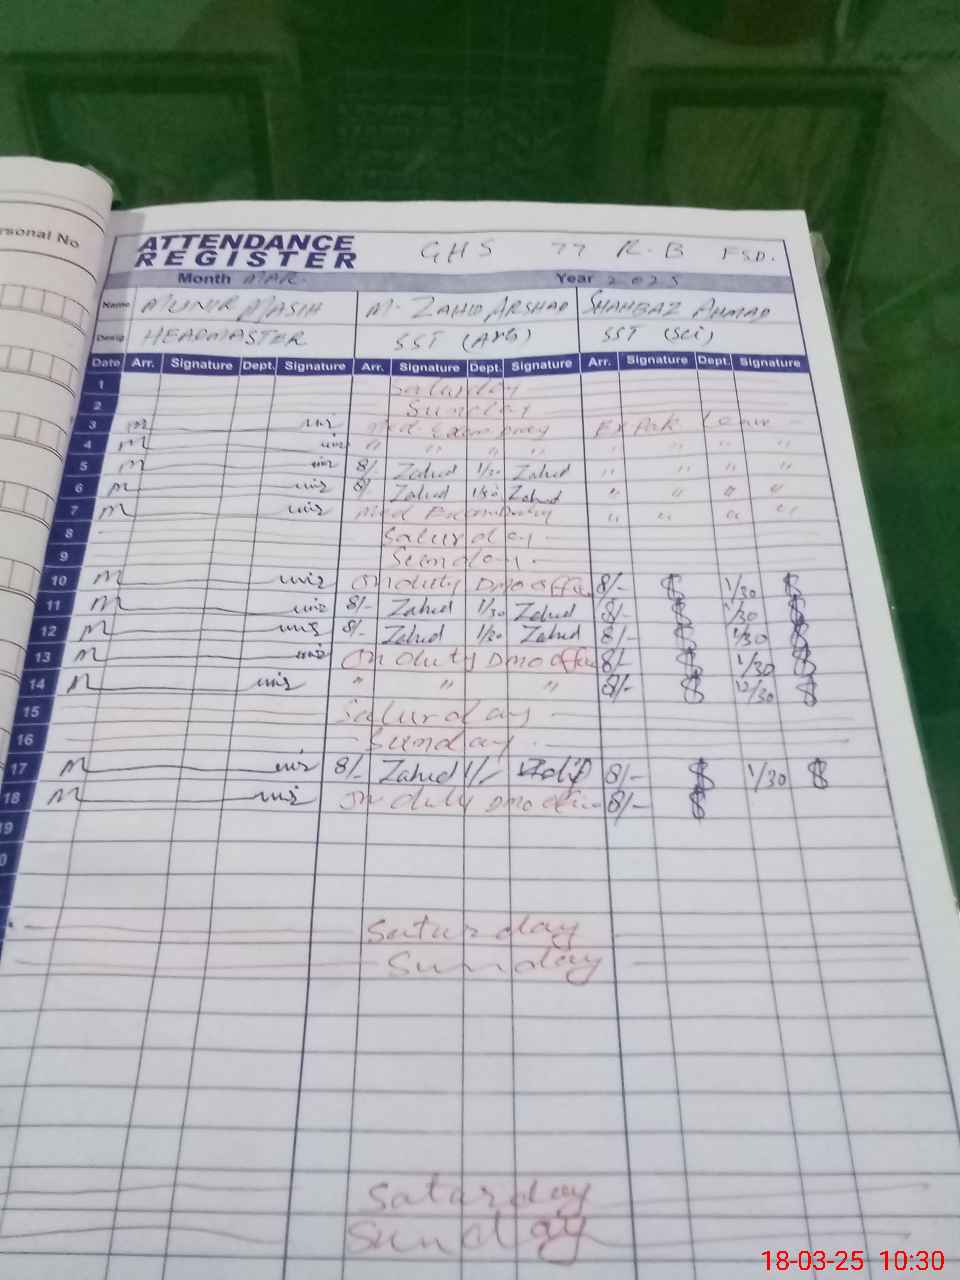 rsonal No
ATTENDANCE REGISTER GHS 77 R.B FSD.
Month MAR. Year 2025
Name MUNIR MASIH M. ZAHID ARSHAD SHAHBAZ AHMAD
Desig HEADMASTER SST (Arb) SST (Sci)
Date Arr. Signature Dept. Signature Arr. Signature Dept. Signature Arr. Signature Dept. Signature
1 Saturday
2 Sunday
3 m nir Ex Pak Leave
4 m nir " " " " " " "
5 m nir 8/- Zahid 1/30 Zahid " " " "
6 m nir 8/- Zahid 1/30 Zahid " " " "
7 m nir Med " " " "
8 Saturday
9 Sunday
10 m nir On duty DMO office 8/- $ 1/30 $
11 m nir 8/- Zahid 1/30 Zahid 8/- $ 1/30 $
12 m nir 8/- Zahid 1/30 Zahid 8/- $ 1/30 $
13 m nir On duty DMO office 8/- $ 1/30 $
14 m nir " " " 8/- $ 12/30 $
15 Saturday
16 Sunday
17 m nir 8/- Zahid 1/- 8/- $ 1/30 $
18 m nir On duty DMO office 8/- $
19
0
Saturday
Sunday
Saturday
Sunday
18-03-25 10:30